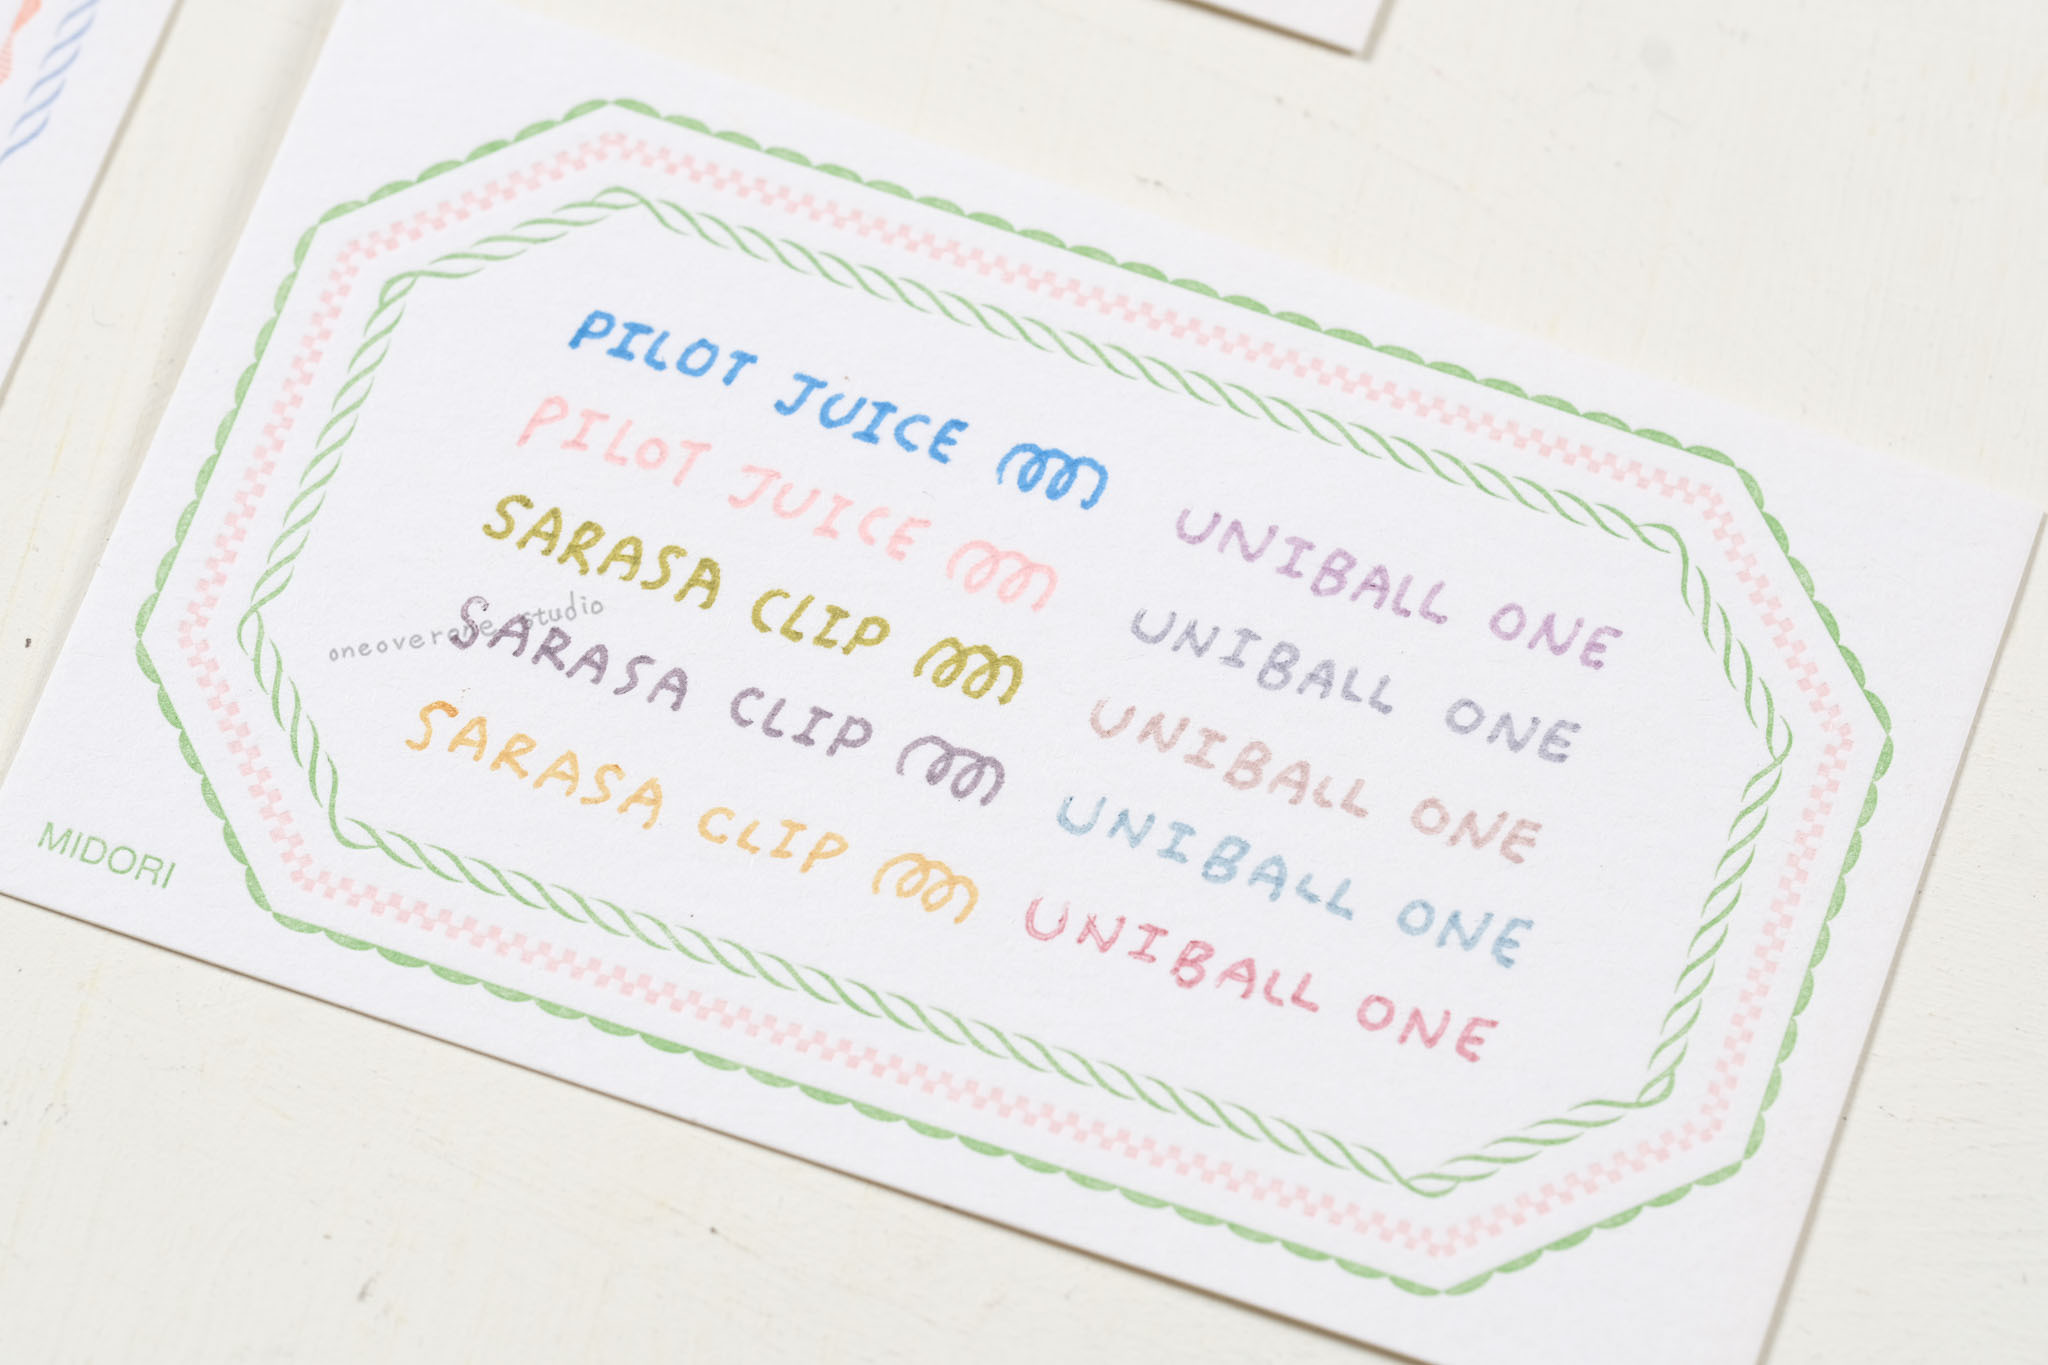 PILOT JUICE
PILOT JUICE
SARASA CLIP
SARASA CLIP
SARASA CLIP
UNIBALL ONE
UNIBALL ONE
UNIBALL ONE
UNIBALL ONE
UNIBALL ONE
oneoverone studio
MIDORI